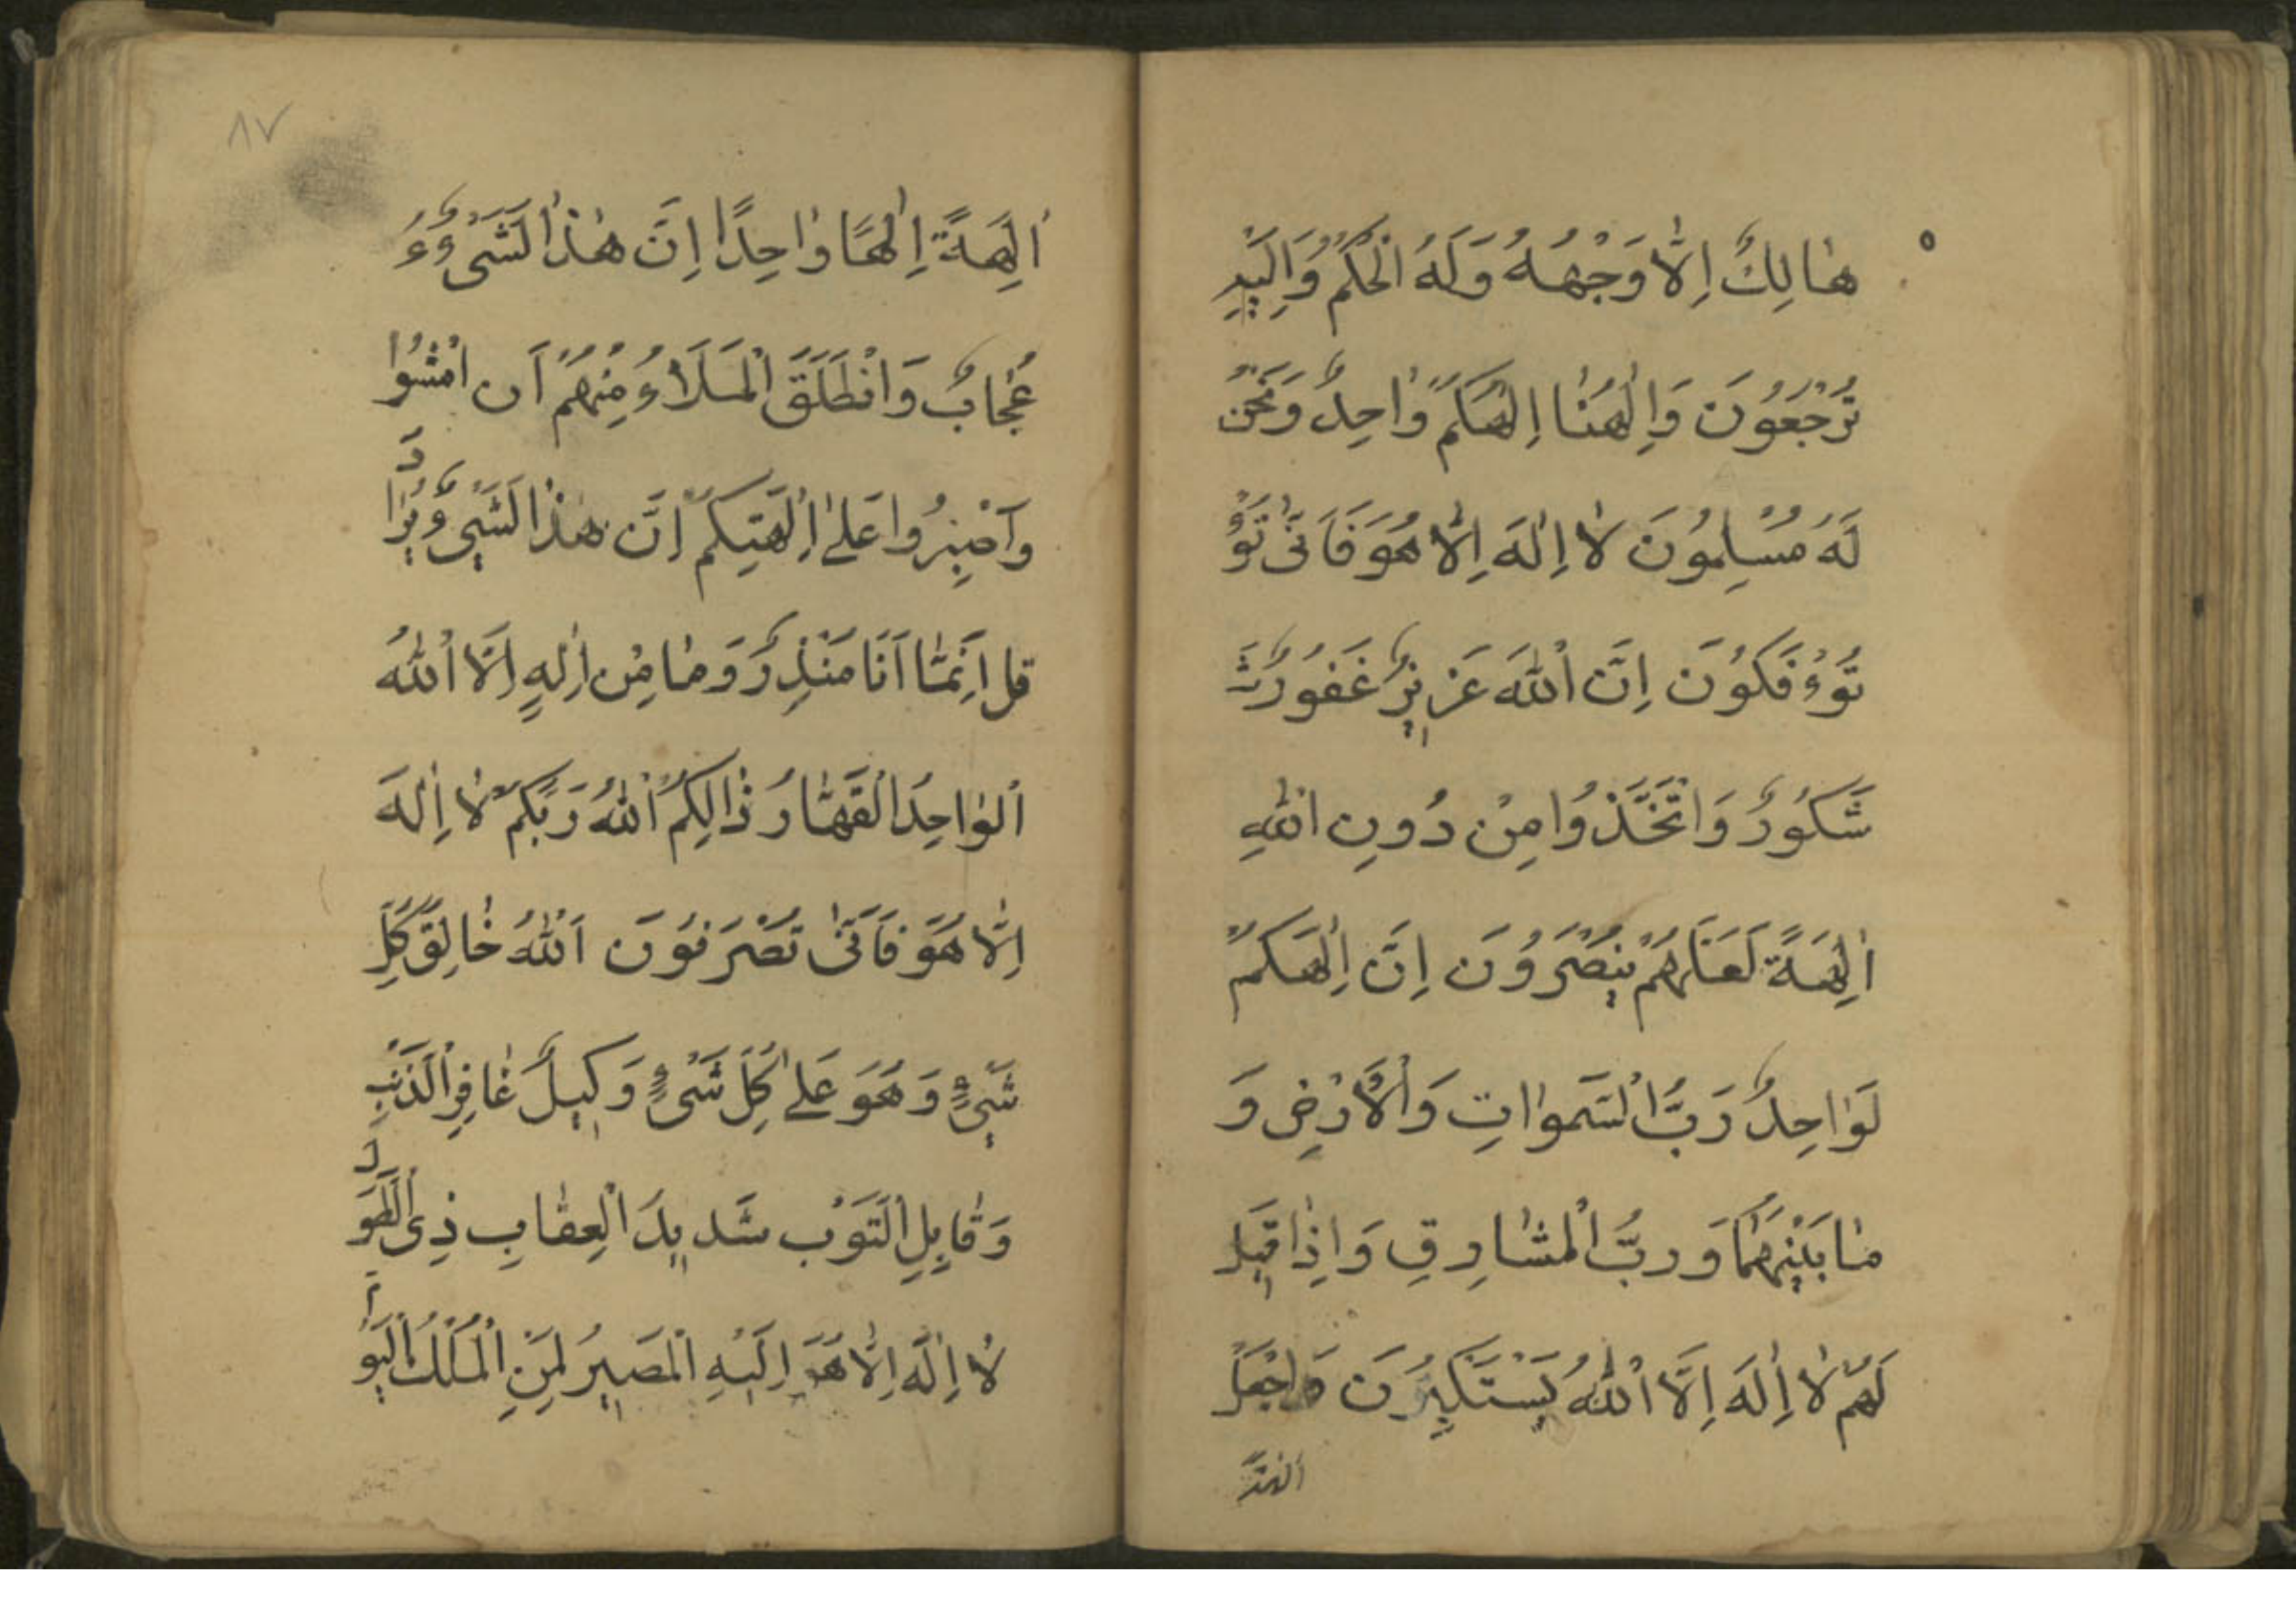 هٰالِكٌ اِلّٰا وَجْهُهُ وَلَهُ الْحُكْمُ وَاِلَيْهِ
تُرْجَعُونَ وَاِلٰهُنٰا اِلٰهُكُمْ وٰاحِدٌ وَنَحْنُ
لَهُ مُسْلِمُونَ لٰا اِلٰهَ اِلّٰا هُوَ فَاَنّٰى تُؤْ
تُوءْفَكُونَ اِنَّ اللّٰهَ عَزِيزٌ غَفُورٌ
شَكُورٌ وَاتَّخَذُوا مِنْ دُونِ اللّٰهِ
اٰلِهَةً لَعَلَّهُمْ يَنْصُرُونَ اِنَّ اِلٰهَكُمْ
لَوٰاحِدٌ رَبُّ السَّمٰوٰاتِ وَالْاَرْضِ وَ
مٰا بَيْنَهُمٰا وَرَبُّ الْمَشٰارِقِ وَاِذٰا قِيلَ
لَهُمْ لٰا اِلٰهَ اِلَّا اللّٰهُ يَسْتَكْبِرُونَ وَاجْعَلْ
اٰلِهَةً اِلٰهًا وٰاحِدًا اِنَّ هٰذٰا لَشَىْءٌ
عُجٰابٌ وَانْطَلَقَ الْمَلَاءُ مِنْهُمْ اَنِ امْشُوا
وَاصْبِرُوا عَلٰى اٰلِهَتِكُمْ اِنَّ هٰذٰا لَشَيْءٌ يُرٰادُ
قل اِنَّمٰا اَنَا مُنْذِرٌ وَمٰا مِنْ اِلٰهٍ اِلَّا اللّٰهُ
الْوٰاحِدُ الْقَهّٰارُ ذٰالِكُمُ اللّٰهُ رَبُّكُمْ لٰا اِلٰهَ
اِلّٰا هُوَ فَاَنّٰى تُصْرَفُونَ اَللّٰهُ خٰالِقُ كُلِّ
شَيْءٍ وَهُوَ عَلٰى كُلِّ شَىْءٍ وَكِيلٌ غٰافِرِ الذَّنْبِ
وَقٰابِلِ التَّوْبِ شَدِيدِ الْعِقٰابِ ذِى الطَّوْلِ
لٰا اِلٰهَ اِلّٰا هُوَ اِلَيْهِ الْمَصِيرُ لِمَنِ الْمُلْكُ الْيَوْمَ
٨٧